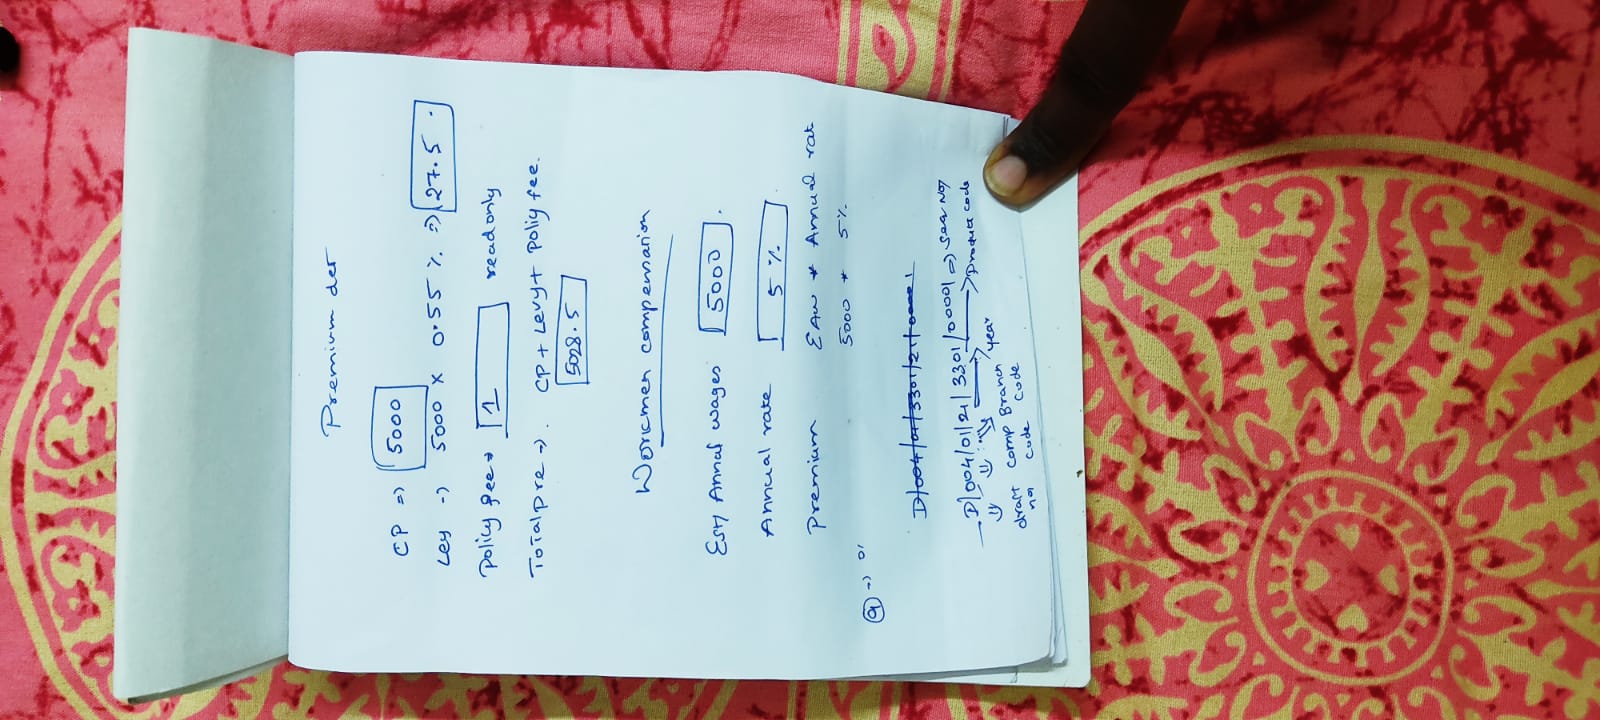 Premium det
CP => 5000
Ley -> 5000 x 0.55 % => 27.5
Policy fee -> 1 readonly
Total pre ->. CP + Levy + Poliy fee.
5028.5
Workmen compensation
Annal wages 5000.
Annual rate 5 %
Premium EAW * Annual rat
5000 * 5%
D/004/01/3301/21/00001
D/004/01/21/3301/00001 => Seq No
draft no comp code Branch code year Product code